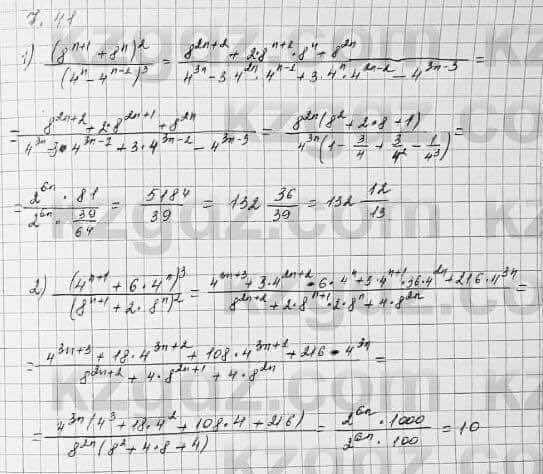 7.41
1) (8^{n+1} + 8^n)^2 / (4^n - 4^{n-1})^3 = 8^{2n+2} + 2·8^{n+1}·8^n + 8^{2n} / 4^{3n} - 3·4^{2n}·4^{n-1} + 3·4^n·4^{2n-2} - 4^{3n-3} =
= 8^{2n+2} + 2·8^{2n+1} + 8^{2n} / 4^{3n} - 3·4^{3n-1} + 3·4^{3n-2} - 4^{3n-3} = 8^{2n}(8^2 + 2·8 + 1) / 4^{3n}(1 - 3/4 + 3/4^2 - 1/4^3) =
= 2^{6n}·81 / 2^{6n}·39/64 = 5184/39 = 132 36/39 = 132 12/13
2) (4^{n+1} + 6·4^n)^3 / (8^{n+1} + 2·8^n)^2 = 4^{3n+3} + 3·4^{2n+2}·6·4^n + 3·4^{n+1}·36·4^{2n} + 216·4^{3n} / 8^{2n+2} + 2·8^{n+1}·2·8^n + 4·8^{2n} =
= 4^{3n+3} + 18·4^{3n+2} + 108·4^{3n+1} + 216·4^{3n} / 8^{2n+2} + 4·8^{2n+1} + 4·8^{2n} =
= 4^{3n}(4^3 + 18·4^2 + 108·4 + 216) / 8^{2n}(8^2 + 4·8 + 4) = 2^{6n}·1000 / 2^{6n}·100 = 10